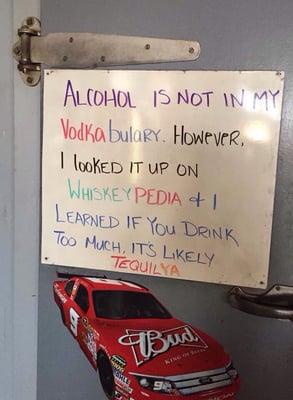 ALCOHOL IS NOT IN MY
Vodkabulary. HOWEVER,
I LOOKED IT UP ON
WHISKEYPEDIA & I
LEARNED IF YOU DRINK
TOO MUCH, IT'S LIKELY
TEQUILYA
9
Bud
KING OF BEERS